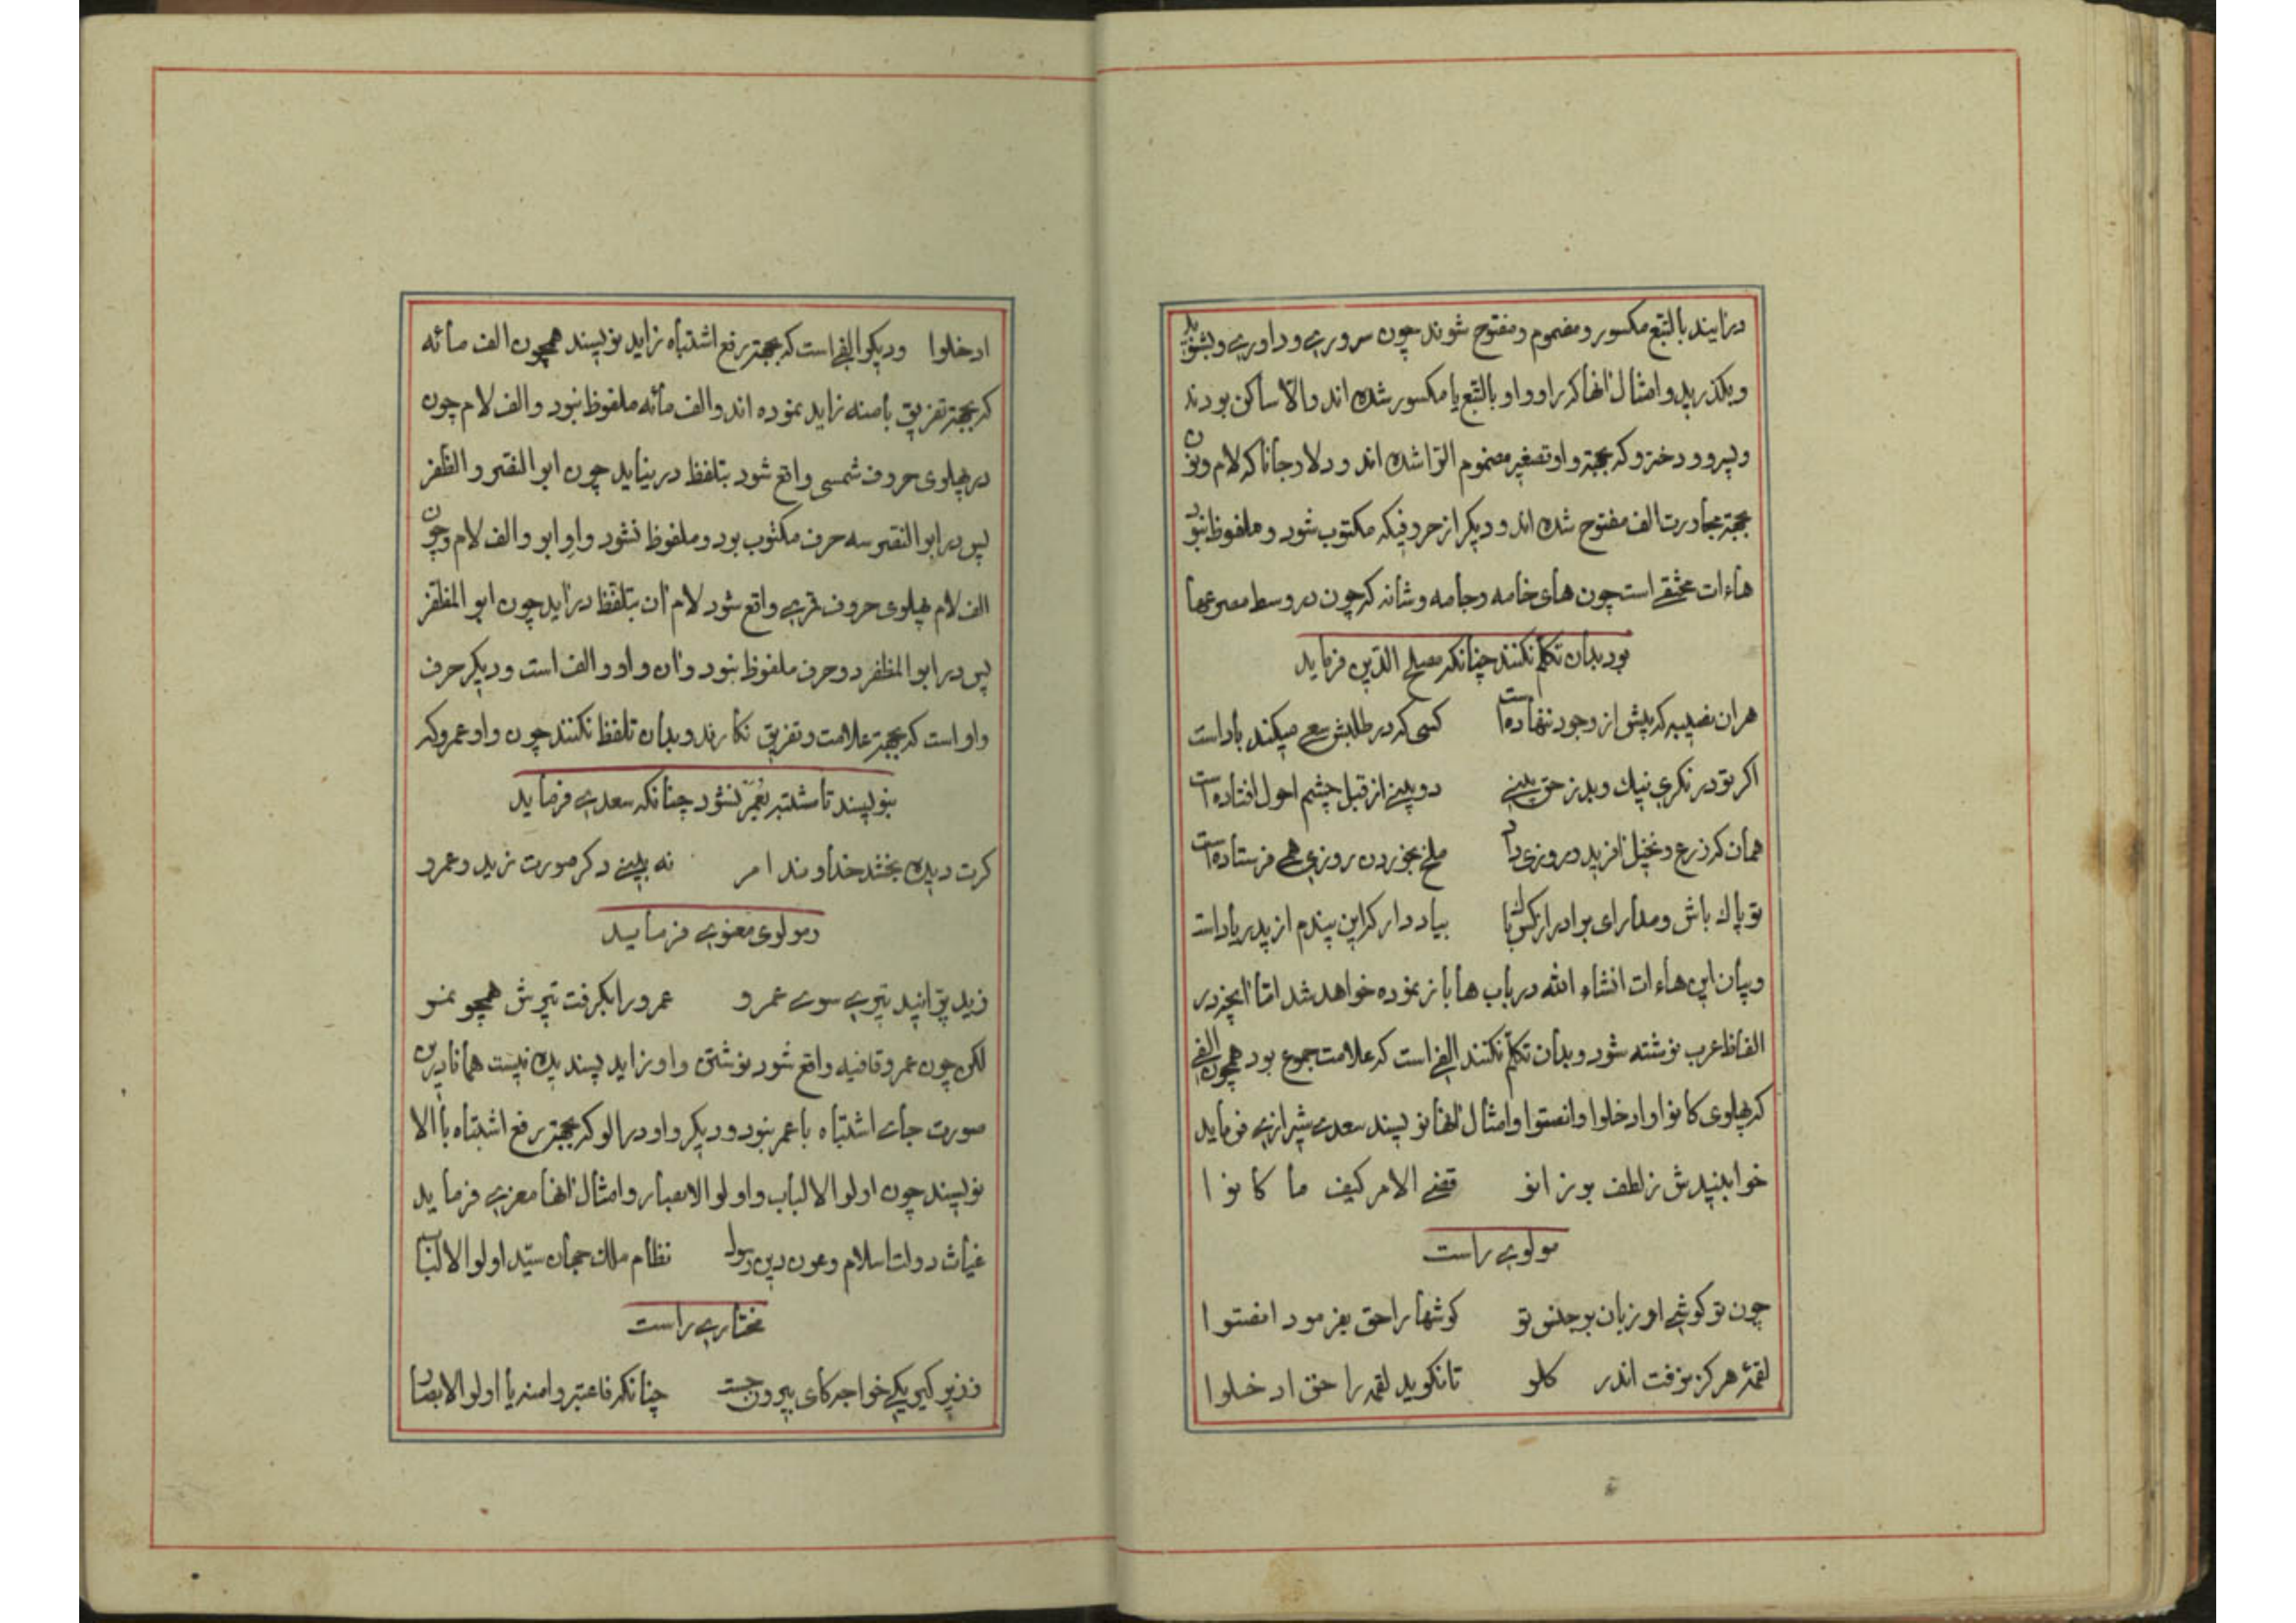 درآیند بالتبع مکسور و مضموم و مفتوح شوند چون سروری و داوری و بشنوید
و بگذرید و امثال آنها که را و واو بالتبع یا مکسور شده اند والا ساکن بودند
و پسرو و دخترو که بجهة واو تصغیر مضموم التوا شده اند و دلا و جانا که لام و نون
بجهة مجاورت الف مفتوح شده اند و دیگر از حروفیکه مکتوب شود و ملفوظ نبود
هاءات مختفی است چون های خامه و جامه و شانه که چون در وسط مصرعها
بود بدان تکلم نکنند چنانکه مصلح الدین فرماید
هران نصیبه که پیش از وجود ننهاده است کسی که در طلبش سعی میکند باد است
اگر تو در نگری نیك و بد ز حق بینی دو بینی از قبل چشم احول افتاده است
همان که زرع و نخیل آفرید و روزی داد ملخ بخوردن روزی همی فرستاده است
تو پاك باش و مدار ای برادر از کس باك بیاد دار که این پندم از پدر یاد است
و بیان این هاءات انشاء الله در باب ها باز نموده خواهد شد اما آنچه در
الفاظ عرب نوشته شود و بدان تکلم نکنند الفی است که علامت جموع بود همچون الفی
که پهلوی کانوا و ادخلوا و انصتوا و امثال آنها نویسند سعدی شیرازی فرماید
خوابنیدش ز لطف بر زانو قضی الامر کیف ما کانوا
مولوی راست
چون تو گوشی او زبان نی جنس تو گوشها را حق بفرمود انصتوا
لقمهٔ هرگز نرفت اندر گلو تا نگوید لقمه را حق ادخلوا
ادخلوا و دیگر الفی است که بجهة رفع اشتباه زاید نویسند همچون الف مائه
که بجهة تفریق بامنه زاید نموده اند و الف مائه ملفوظ نبود و الف لام چون
در پهلوی حروف شمسی واقع شود بتلفظ در نیاید چون ابو النصر و الظفر
پس در ابو النصر سه حرف مکتوب بود و ملفوظ نشود واو ابو و الف لام و چون
الف لام پهلوی حروف قمری واقع شود لام آن بتلفظ درآید چون ابو المظفر
پس در ابو المظفر دو حرف ملفوظ نبود و آن واو و الف است و دیگر حرف
واو است که بجهة علامت و تفریق نگارند و بدان تلفظ نکنند چون واو عمرو که
بنویسند تا مشتبه بعمر نشود چنانکه سعدی فرماید
گرت دیده بخشد خداوند امر نه بینی دگر صورت زید و عمرو
و مولوی معنوی فرماید
زید پرّانید تیری سوی عمرو عمرو را بگرفت تیرش همچو نمر
لکن چون عمرو قافیه واقع شود نوشتن واو زاید پسندیده نیست همانا درین
صورت جای اشتباه با عمر نبود و دیگر واو در الو که بجهة رفع اشتباه با الا
نویسند چون اولو الالباب و اولو الابصار و امثال آنها معزی فرماید
غیاث دولت اسلام و عون دین رسول نظام ملك جهان سید اولو الالباب
مختاری راست
چنانکه فاعتبروا منه یا اولو الابصار